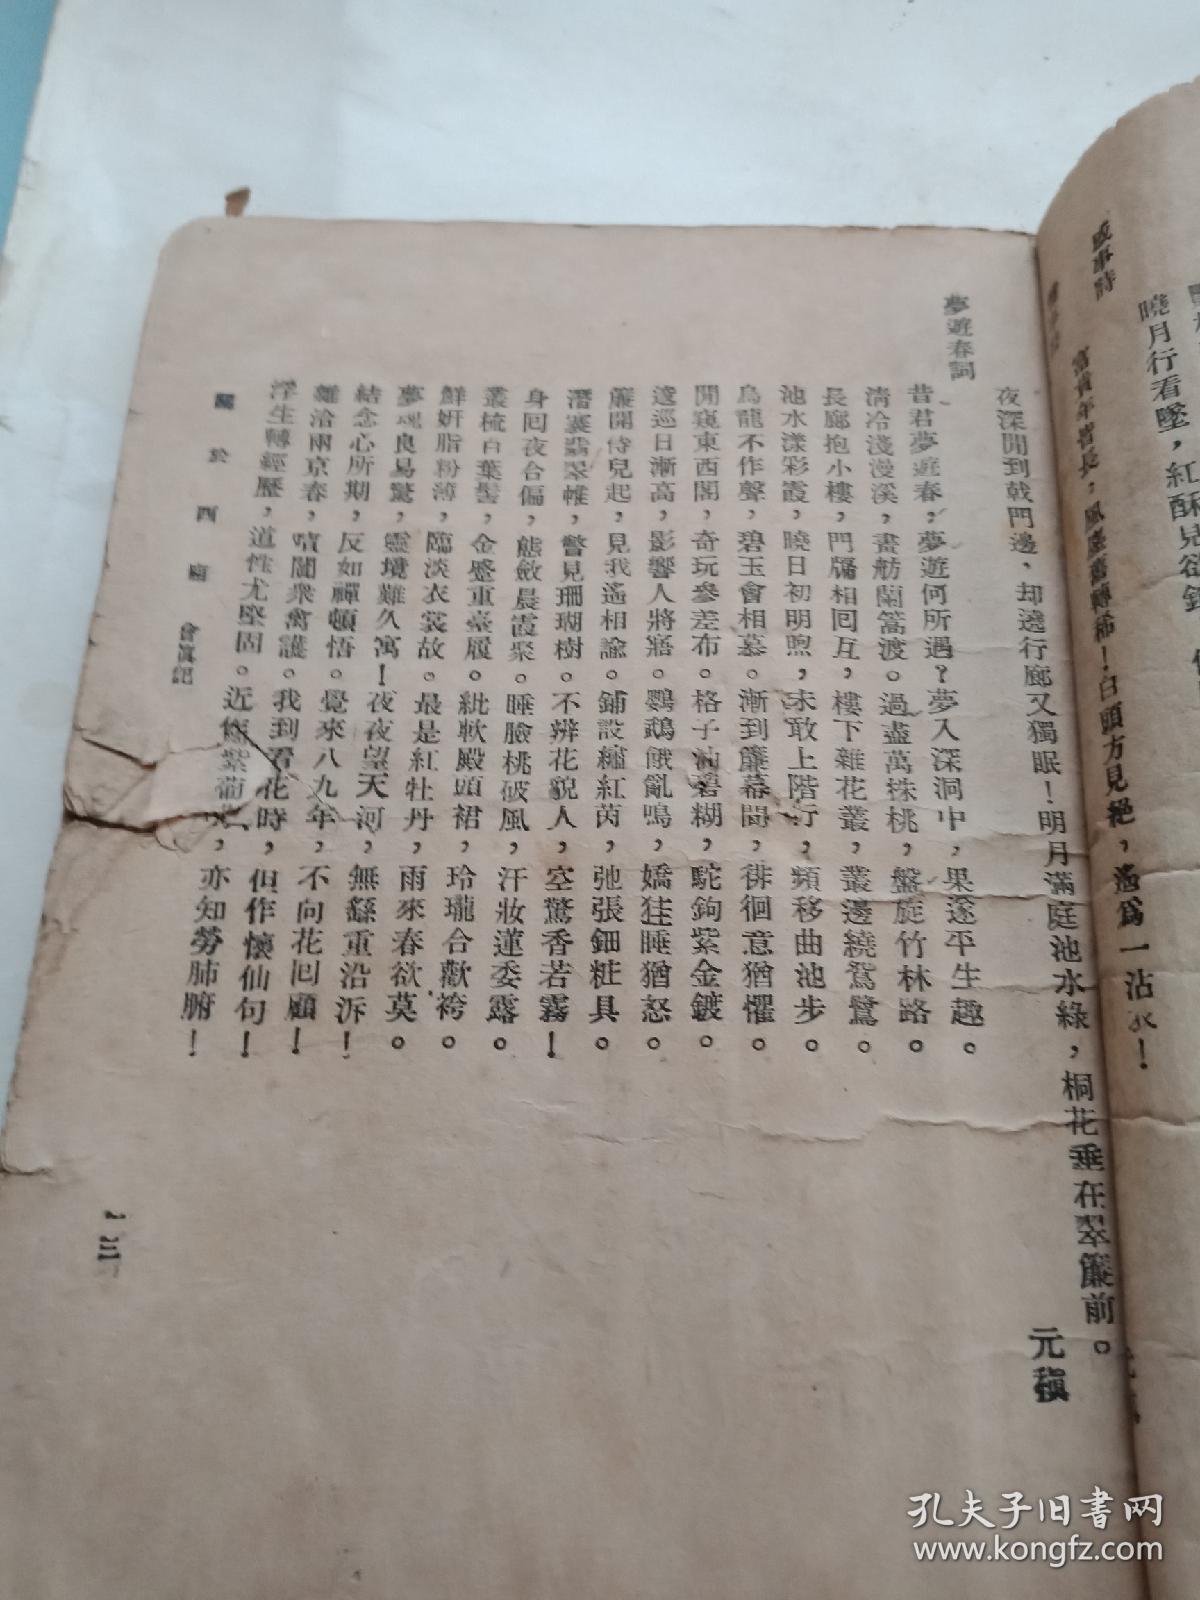 曉月行看墜，紅酥
富貴年皆長，風塵舊轉稀！白頭方見絕，遙爲一沾衣！
夜深閒到戟門邊、却遶行廊又獨眠！明月滿庭池水綠，桐花垂在翠簾前。
夢遊春詞
元稹
昔君夢遊春，夢遊何所遇？夢入深洞中，果遂平生趣。
淸冷淺漫溪，畫舫蘭篙渡。過盡萬株桃，盤旋竹林路。
長廊抱小樓，門牖相回互，樓下雜花叢，叢邊繞鴛鷺。
池水漾彩霞，曉日初明煦，未敢上階行，頻移曲池步。
烏龍不作聲，碧玉曾相慕。漸到簾幕間，徘徊意猶懼。
閒窺東西閣，奇玩參差布。格子油碧糊，駝鉤紫金鍍。
逡巡日漸高，影響人將寤。鸚鵡餓亂鳴，嬌㹻睡猶怒。
簾開侍兒起，見我遙相諭。鋪設繡紅茵，弛張鈿粧具。
潛褰翡翠帷，瞥見珊瑚樹。不辨花貌人，空驚香若霧！
身囘夜合偏，態斂晨霞聚。睡臉桃破風，汗妝蓮委露。
叢梳百葉髻，金蹙重臺履。紕軟殿頭裙，玲瓏合歡袴。
鮮妍脂粉薄，臨淡衣裳故。最是紅牡丹，雨來春欲莫。
夢魂良易驚，靈境難久寓！夜夜望天河，無繇重沿泝！
結念心所期，反如禪頓悟。覺來八九年，不向花囘顧！
雜洽兩京春，喧闐衆禽護。我到看花時，但作懷仙句！
浮生轉經歷，道性尤堅固。近作紫葡，亦知勞肺腑！
關於西廂
會眞記
一三
孔夫子旧书网
www.kongfz.com